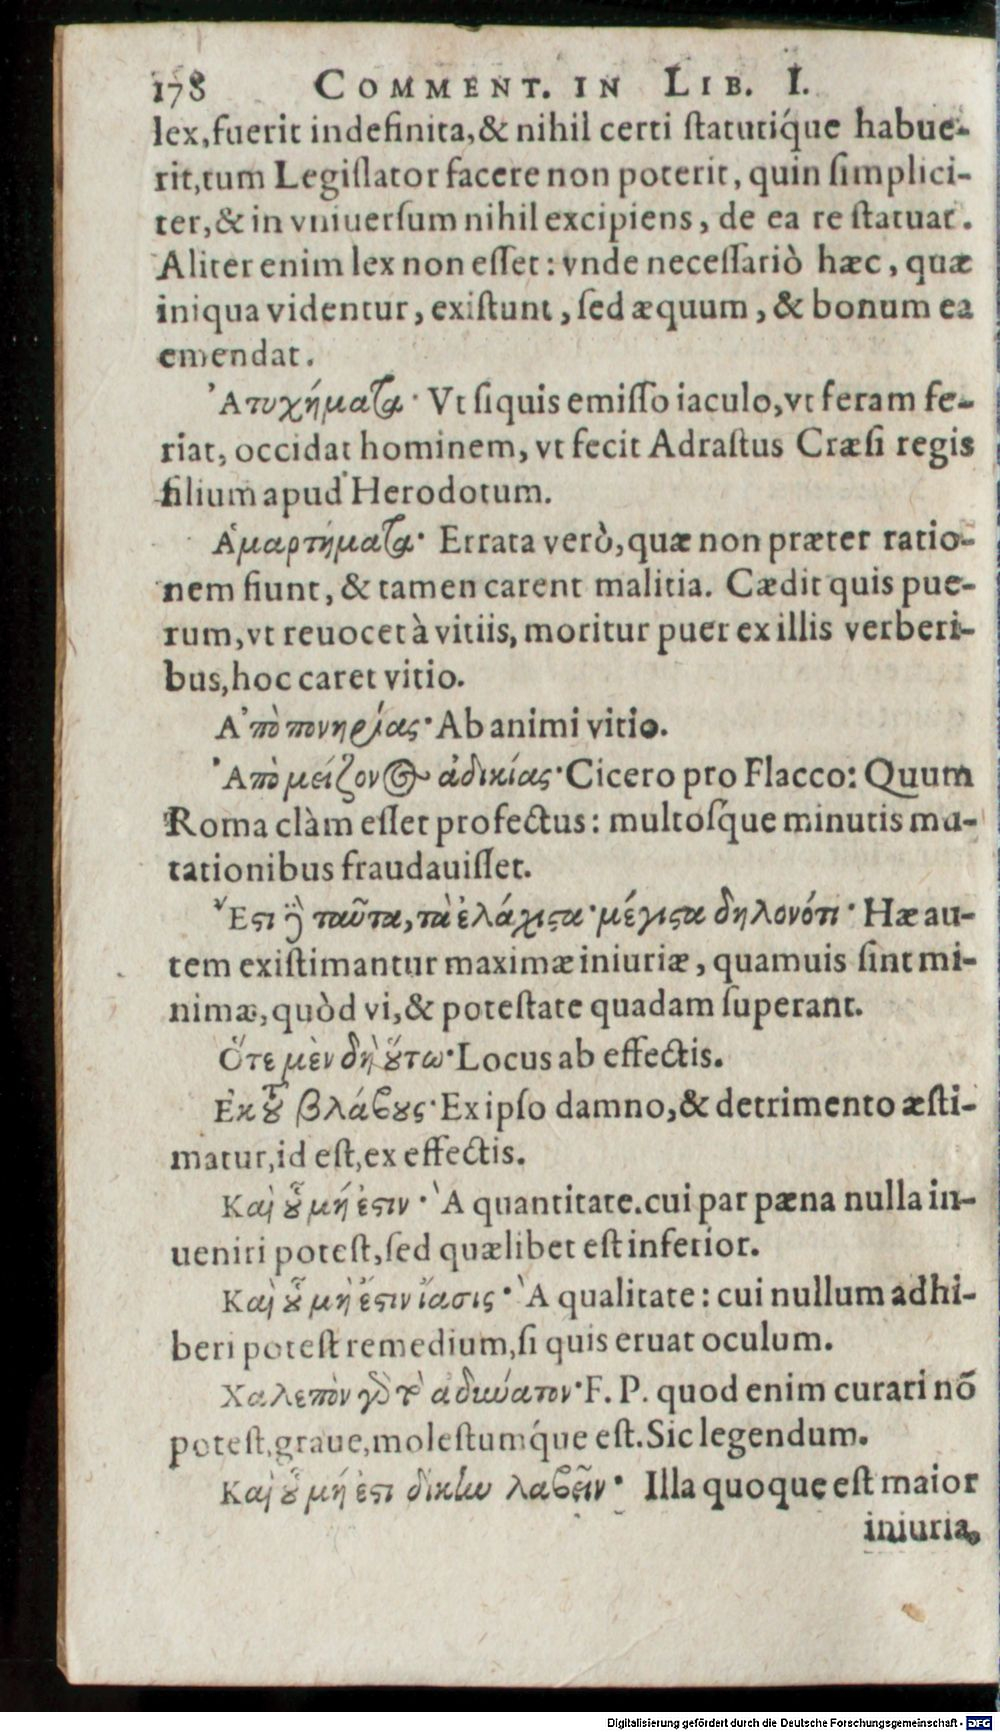 178 COMMENT. IN LIB. I.
lex, fuerit indefinita, & nihil certi statutíque habue-
rit, tum Legislator facere non poterit, quin simplici-
ter, & in vniuersum nihil excipiens, de ea re statuat.
Aliter enim lex non esset: vnde necessariò hæc, quæ
iniqua videntur, existunt, sed æquum, & bonum ea
emendat.
Ἀτυχήματα· Vt siquis emisso iaculo, vt feram fe-
riat, occidat hominem, vt fecit Adrastus Cræsi regis
filium apud Herodotum.
Ἁμαρτήματα· Errata verò, quæ non præter ratio-
nem fiunt, & tamen carent malitia. Cædit quis pue-
rum, vt reuocet à vitiis, moritur puer ex illis verberi-
bus, hoc caret vitio.
Ἀπὸ πονηρίας· Ab animi vitio.
Ἀπὸ μείζονος ἀδικίας· Cicero pro Flacco: Quum
Roma clàm esset profectus: multosque minutis mu-
tationibus fraudauisset.
Ἔστι ἢ ταῦτα, τὰ ἐλάχιστα· μέγιστα δηλονότι· Hæ au-
tem existimantur maximæ iniuriæ, quamuis sint mi-
nimæ, quòd vi, & potestate quadam superant.
Ὅτε μὲν δὴ οὕτω· Locus ab effectis.
Ἐκ τοῦ βλάβους· Ex ipso damno, & detrimento æsti-
matur, id est, ex effectis.
Καὶ οὗ μή ἐστιν· A quantitate. cui par pæna nulla in-
ueniri potest, sed quælibet est inferior.
Καὶ οὗ μὴ ἔστιν ἴασις· A qualitate: cui nullum adhi-
beri potest remedium, si quis eruat oculum.
Χαλεπὸν γὰρ τὸ ἀδύνατον· F. P. quod enim curari nō
potest, graue, molestumque est. Sic legendum.
Καὶ οὗ μή ἐστι δίκην λαβεῖν· Illa quoque est maior
iniuria,
Digitalisierung gefördert durch die Deutsche Forschungsgemeinschaft - DFG